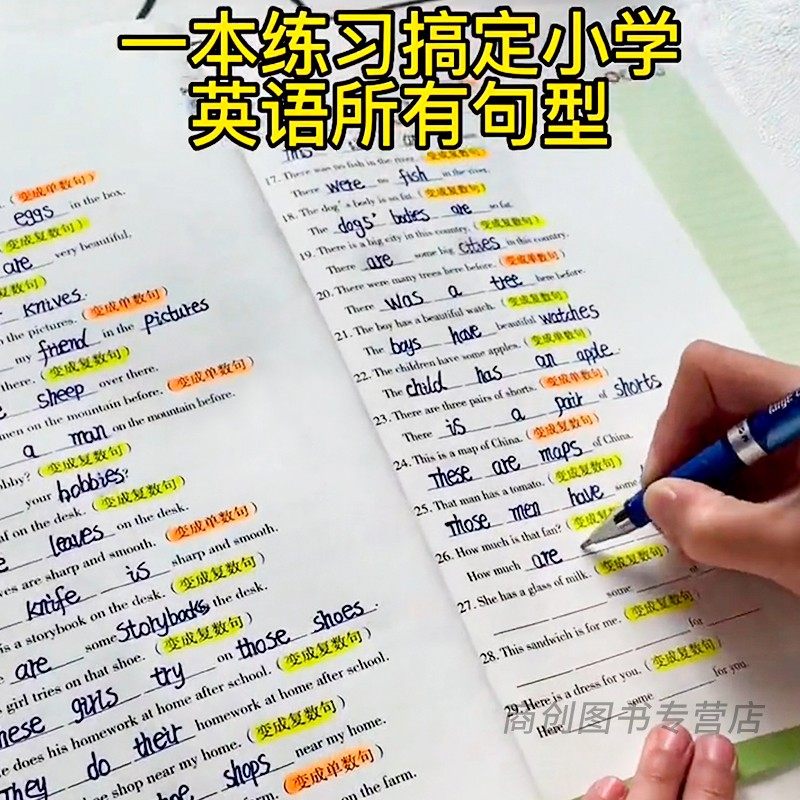 一本练习搞定小学
英语所有句型
(变成单数句)
eggs in the box.
(变成复数句)
are very beautiful.
变成复数句)
knives.
n the pictures. (变成单数句)
my friend in the pictures
there. (变成复数句)
sheep over there.
men on the mountain before. (变成单数句)
a man on the mountain before.
(变成复数句)
your hobbies?
on the desk. (变成复数句)
leaves on the desk.
ves are sharp and smooth. (变成单数句)
knife is sharp and smooth.
is a storybook on the desk. (变成复数句)
are some Storybooks the desk.
girl tries on that shoe. (变成复数句)
hese girls try on those shoes.
e does his homework at home after school. (变成复数句)
They do their homework at home after school.
shoe shop near my home. (变成复数句)
shoe shops near my home.
(变成单数句)
on the farm.
17. There was no fish in the river. (变成复数句)
There were no fish in the river.
18. The dog's body is so fat. (变成复数句)
The dogs' bodies are so fat.
19. There is a big city in this country. (变成复数句)
There are some big cities in this country.
20. There were many trees here before. (变成单数句)
There was a tree here before.
21. The boy has a beautiful watch. (变成复数句)
The boys have beautiful watches
22. The children have some apples. (变成单数句)
The child has an apple.
23. There are three pairs of shorts. (变成单数句)
There is a pair of shorts
24. This is a map of China. (变成复数句)
These are maps of China.
25. That man has a tomato. (变成复数句)
Those men have some
26. How much is that fan? (变成复
How much are
27. She has a glass of milk. (变成复数句)
some of
28. This sandwich is for me. (变成复数句)
for
29. Here is a dress for you. (变成复数句)
Here some for you.
商创图书专营店